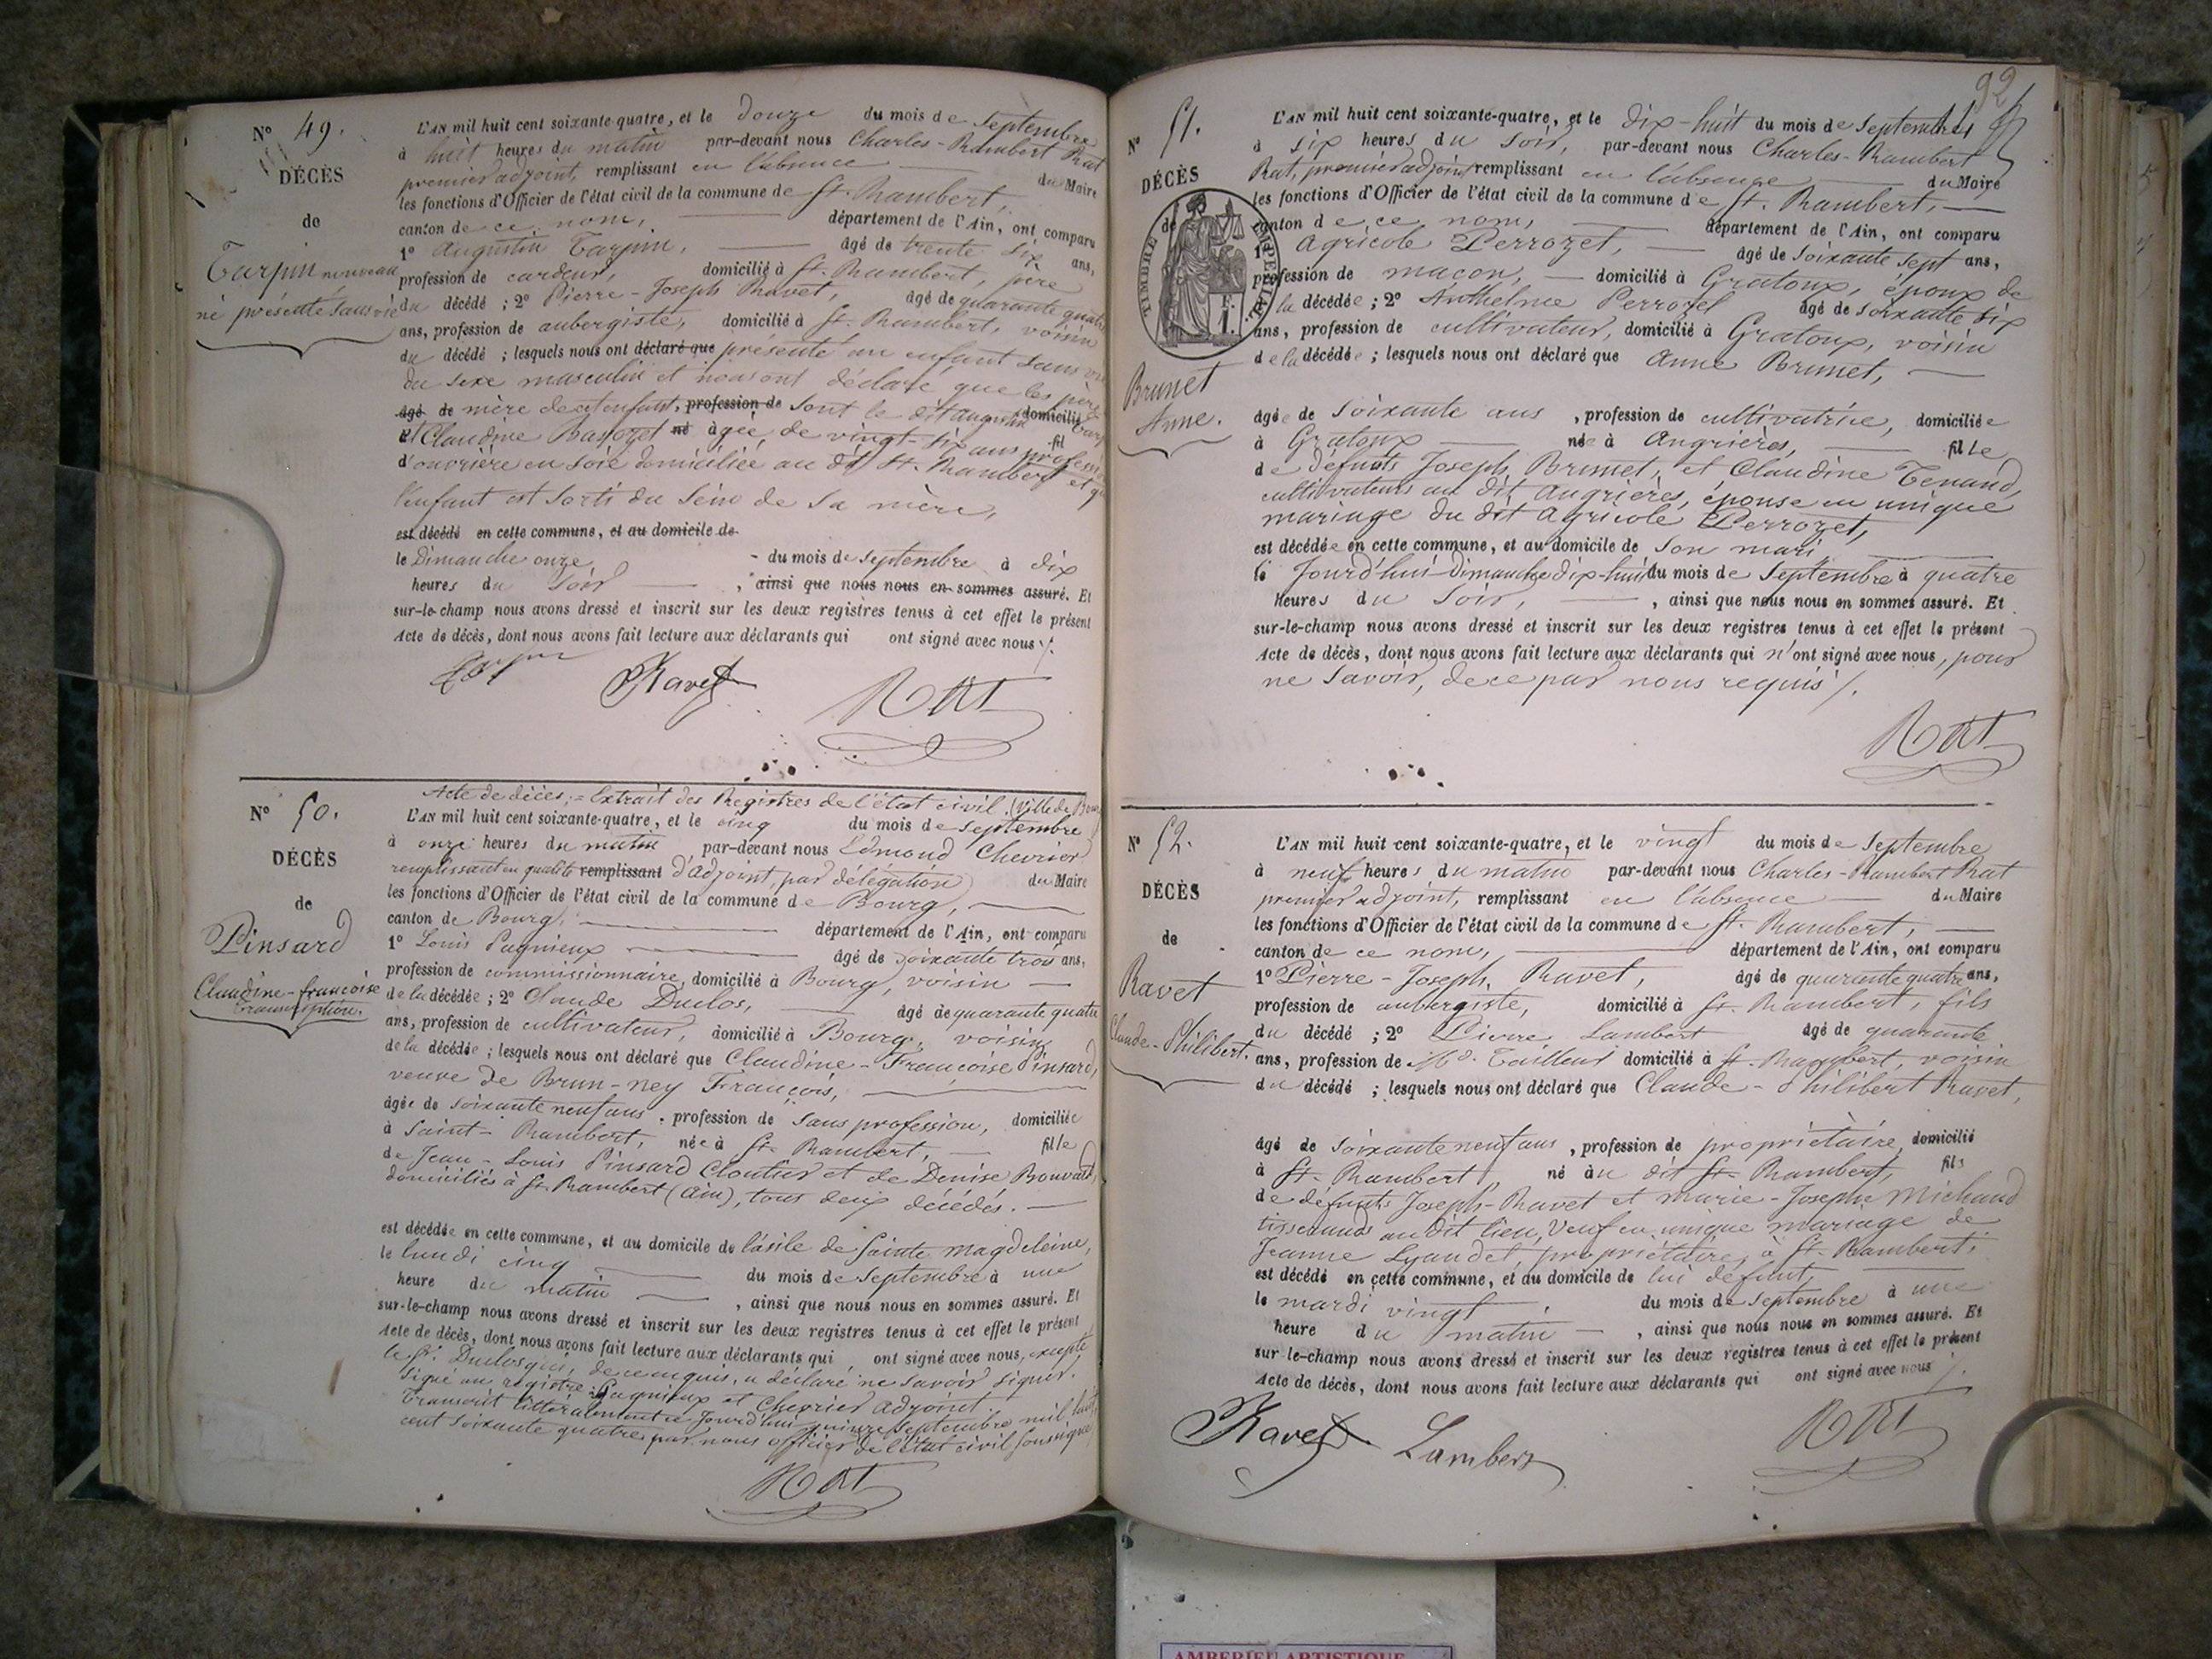 N° 49.
DÉCÈS
de
Tarpin nouveau
né présenté sans vie
L'AN mil huit cent soixante-quatre, et le douze du mois de Septembre
à huit heures du matin par-devant nous Charles-Rambert Rat
premier adjoint, remplissant en l'absence du Maire
les fonctions d'Officier de l'état civil de la commune de St. Rambert,
canton de ce nom, département de l'Ain, ont comparu
1° Augustin Tarpin, âgé de trente six ans,
profession de cardeur, domicilié à St. Rambert, père
du décédé ; 2° Pierre-Joseph Ravet, âgé de quarante quatre
ans, profession de aubergiste, domicilié à St. Rambert, voisin
du décédé ; lesquels nous ont déclaré que présenté un enfant sans vie
du sexe masculin et nous ont déclaré que les père
âgé de mère de cet enfant, profession de sont le dit augustin domicilié
et Claudine née âgée de vingt-six ans fil profession
d'ouvrière en soie domiciliée au dit St. Rambert et que
l'enfant est sorti du sein de sa mère,
est décédé en cette commune, et au domicile de
le Dimanche onze du mois de Septembre à dix
heures du soir, ainsi que nous nous en sommes assuré. Et
sur-le-champ nous avons dressé et inscrit sur les deux registres tenus à cet effet le présent
Acte de décès, dont nous avons fait lecture aux déclarants qui ont signé avec nous ./.
Ravet
Rat
N° 50.
DÉCÈS
de
Pinsard
Claudine-françoise
transcription.
Acte de décès. = Extrait des Registres de l'état civil. (Ville de Bourg
L'AN mil huit cent soixante-quatre, et le cinq du mois de Septembre
à onze heures du matin par-devant nous Edmond Chevrier
remplissant en qualité remplissant d'adjoint, par délégation du Maire
les fonctions d'Officier de l'état civil de la commune de Bourg,
canton de Bourg, département de l'Ain, ont comparu
1° Louis Pagnieux âgé de soixante trois ans,
profession de commissionnaire, domicilié à Bourg, voisin
de la décédée ; 2° Claude Duclos, âgé de quarante quatre
ans, profession de cultivateur, domicilié à Bourg, voisin
de la décédée ; lesquels nous ont déclaré que Claudine-Françoise Pinsard,
veuve de Brun-ney François,
âgée de soixante neuf ans, profession de sans profession, domiciliée
à Saint-Rambert, née à St. Rambert, fille
de Jean-Louis Pinsard Cloutier et de Denise Bouvard,
domiciliés à St. Rambert (Ain), tous deux décédés.
est décédée en cette commune, et au domicile de l'asile de Sainte Magdeleine,
le lundi cinq du mois de Septembre à une
heure du matin, ainsi que nous nous en sommes assuré. Et
sur-le-champ nous avons dressé et inscrit sur les deux registres tenus à cet effet le présent
Acte de décès, dont nous avons fait lecture aux déclarants qui ont signé avec nous, excepté
le Sr. Duclos qui, de ce requis, a déclaré ne savoir signer.
Signé au registre Pagnieux et Chevrier adjoint.
Transcrit littéralement ce jourd'hui quinze Septembre mil huit
cent soixante quatre par nous officier de l'état civil soussigné
Rat
92
N° 51.
DÉCÈS
de
TIMBRE IMPERIAL
1 F.
Brunet
Anne.
L'AN mil huit cent soixante-quatre, et le dix-huit du mois de Septembre
à six heures du soir, par-devant nous Charles-Rambert
Rat, premier adjoint remplissant en l'absence du Maire
les fonctions d'Officier de l'état civil de la commune de St. Rambert,
canton de ce nom, département de l'Ain, ont comparu
1° Agricole Perrozet, âgé de soixante sept ans,
profession de maçon, domicilié à Gratoux, époux de
la décédée ; 2° Anthelme Perrozet âgé de soixante six
ans, profession de cultivateur, domicilié à Gratoux, voisin
de la décédée ; lesquels nous ont déclaré que Anne Brunet,
âgée de soixante ans, profession de cultivatrice, domiciliée
à Gratoux née à Angrières, fille
de défunts Joseph Brunet, et Claudine Tenand,
cultivateurs au dit Angrières, épouse en unique
mariage du dit Agricole Perrozet,
est décédée en cette commune, et au domicile de son mari,
le Jourd'hui Dimanche dix-huit du mois de Septembre à quatre
heures du soir, ainsi que nous nous en sommes assuré. Et
sur-le-champ nous avons dressé et inscrit sur les deux registres tenus à cet effet le présent
Acte de décès, dont nous avons fait lecture aux déclarants qui n'ont signé avec nous, pour
ne savoir, de ce par nous requis ./.
Rat
N° 52.
DÉCÈS
de
Ravet
Claude-Philibert.
L'AN mil huit cent soixante-quatre, et le vingt du mois de Septembre
à neuf heures du matin par-devant nous Charles-Rambert Rat
premier adjoint, remplissant en l'absence du Maire
les fonctions d'Officier de l'état civil de la commune de St. Rambert,
canton de ce nom, département de l'Ain, ont comparu
1° Pierre-Joseph Ravet, âgé de quarante quatre ans,
profession de aubergiste, domicilié à St. Rambert, fils
du décédé ; 2° Pierre Lambert âgé de quarante
ans, profession de Md. Tailleur domicilié à St. Rambert, voisin
du décédé ; lesquels nous ont déclaré que Claude-Philibert Ravet,
âgé de soixante neuf ans, profession de propriétaire, domicilié
à St. Rambert, né au dit St. Rambert, fils
de défunts Joseph Ravet et Marie-Josephe Michaud
tisserands au dit lieu, Veuf en unique mariage de
Jeanne Lyaudet, propriétaire, à St. Rambert,
est décédé en cette commune, et au domicile de lui défunt,
le mardi vingt du mois de Septembre à une
heure du matin, ainsi que nous nous en sommes assuré. Et
sur-le-champ nous avons dressé et inscrit sur les deux registres tenus à cet effet le présent
Acte de décès, dont nous avons fait lecture aux déclarants qui ont signé avec nous ./.
Ravet
Lambert
Rat
AMBERIEU ARTISTIQUE